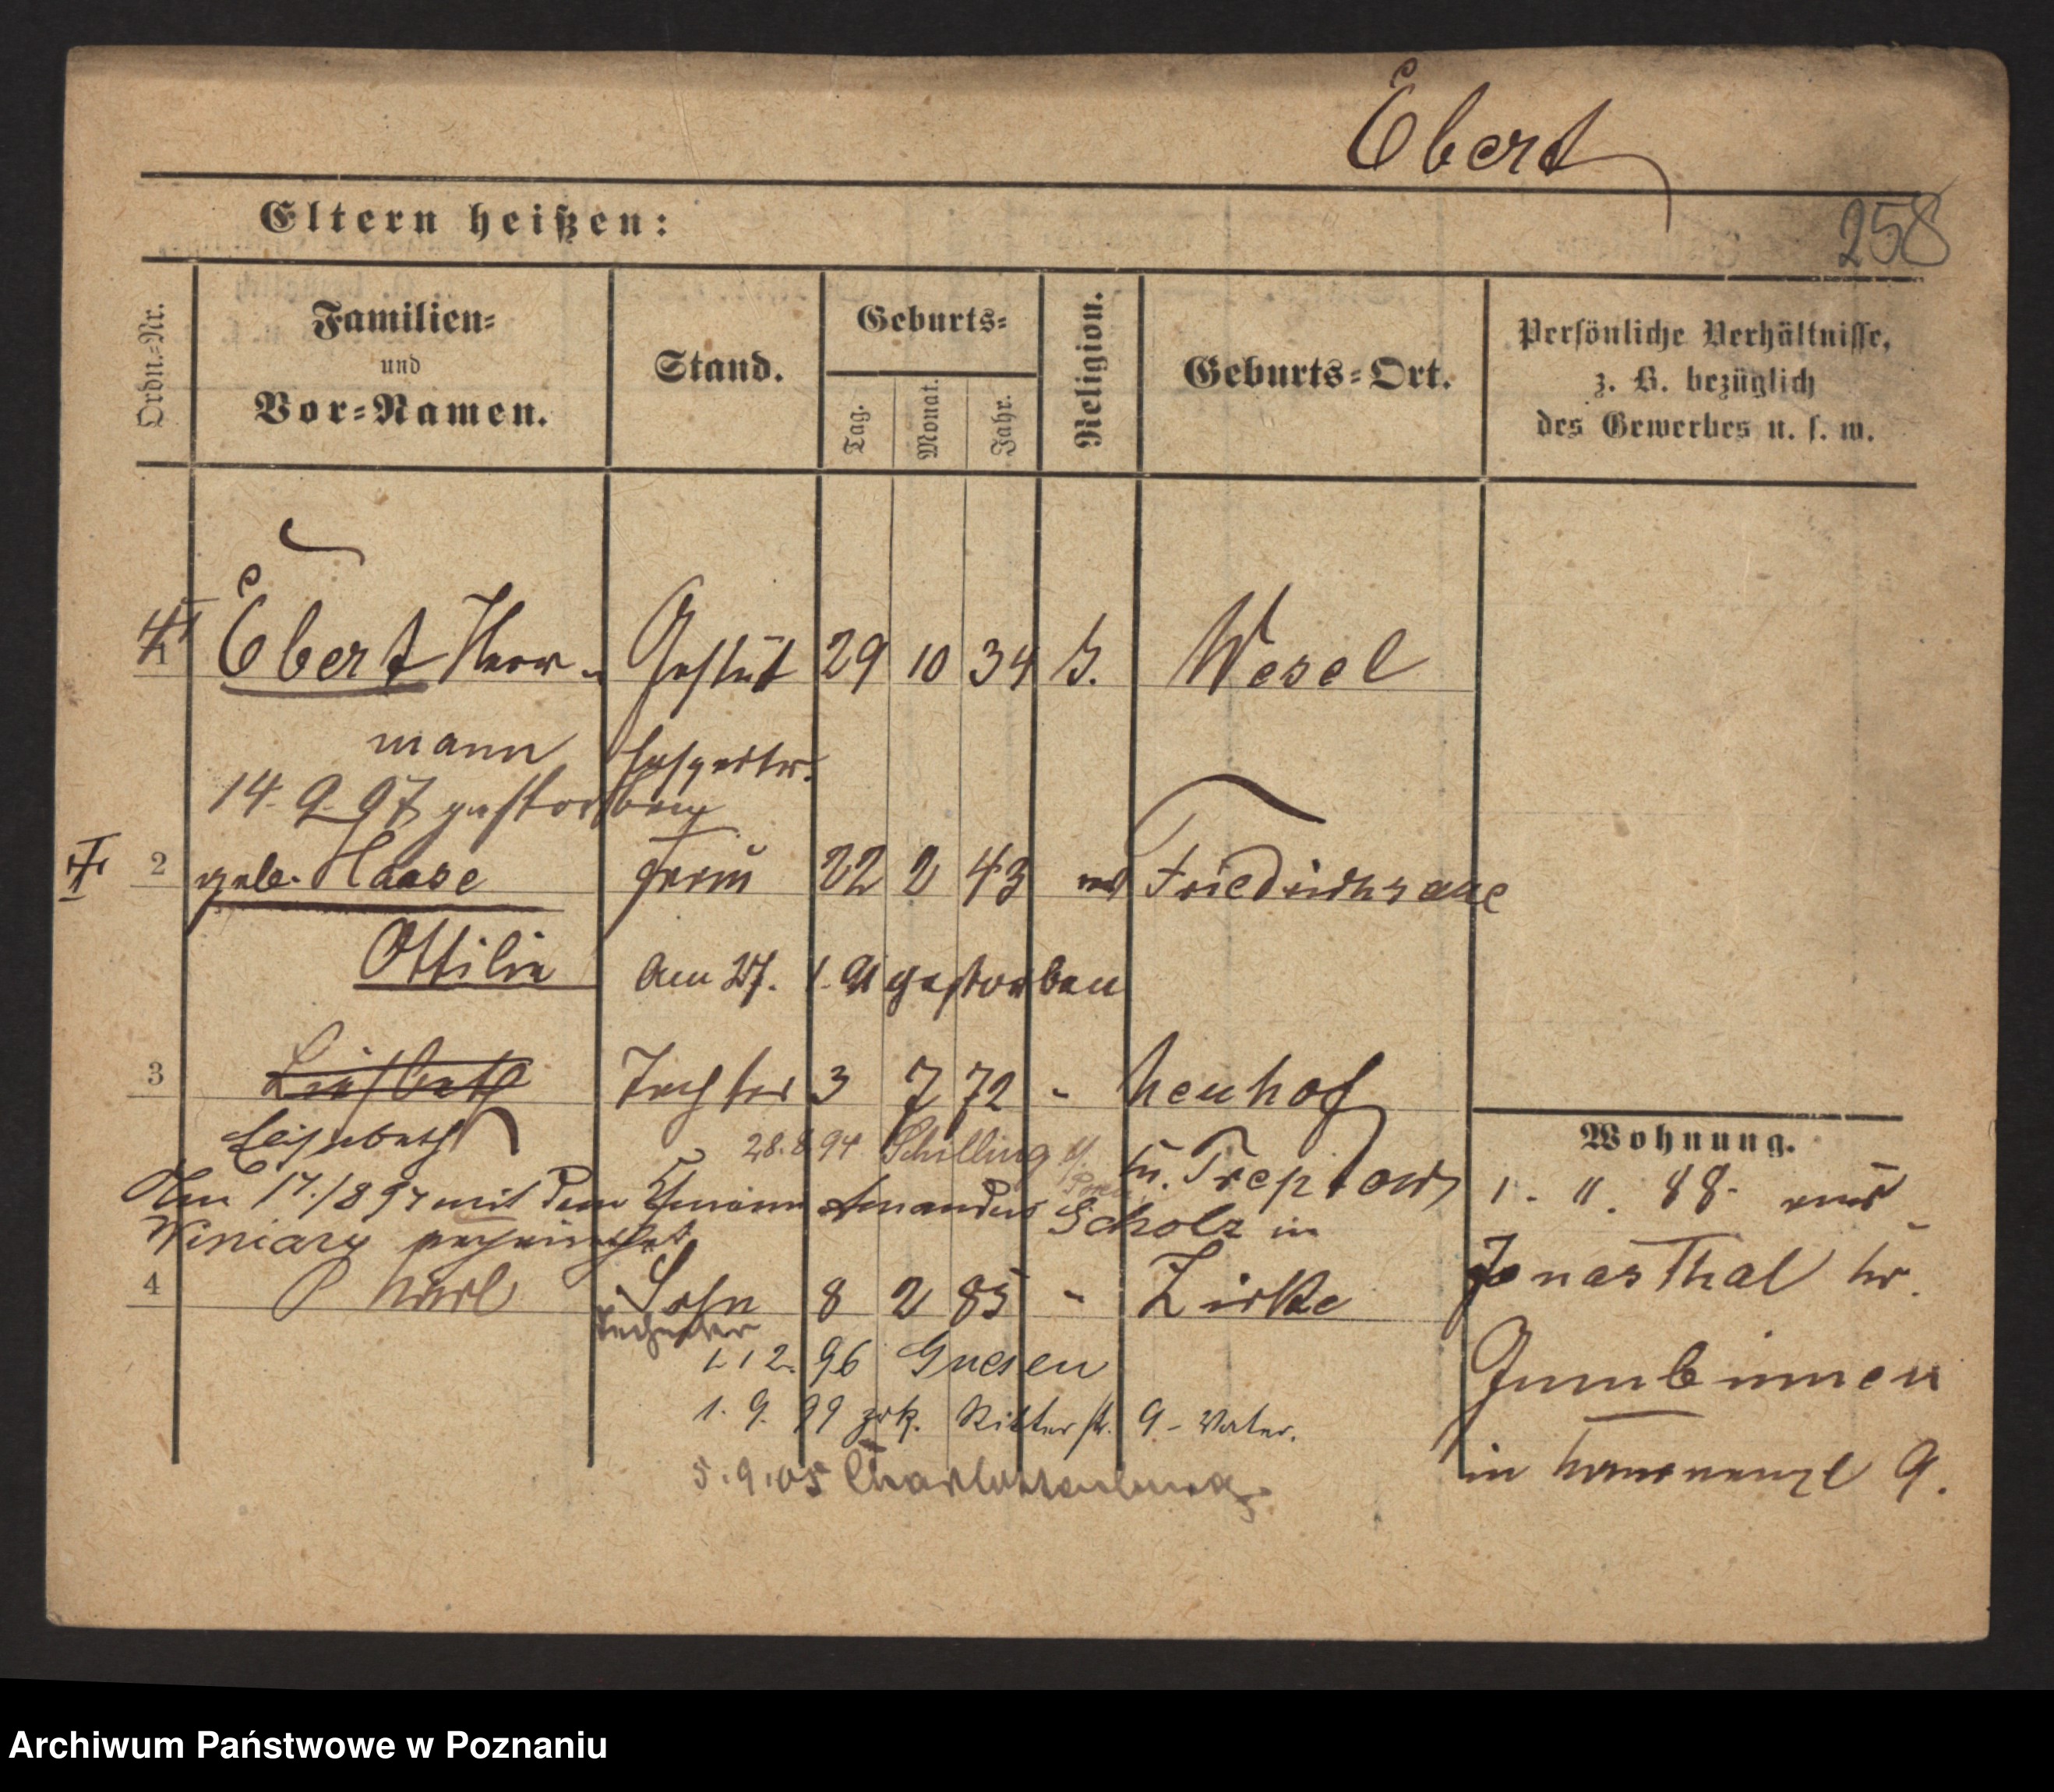 Ebert
258
Eltern heißen:
Ordn.-Nr.
Familien-
und
Vor-Namen.
Stand.
Geburts-
Tag.
Monat.
Jahr.
Religion.
Geburts-Ort.
Persönliche Verhältnisse,
z. B. bezüglich
des Gewerbes u. s. w.
1 Ebert Herr- Gestüt 29 10 34 Wesel
mann Inspektor.
14. 9. 97 gestorben
2 geb. Haase Frau 22 2 43 Friedrichsaue
Ottilie Am 27. 1. 91 gestorben
3 Liesbeth Tochter 3 7 72 - Neuhof
Elisabeth 28. 8. 94 Schilling Kr. Treptow
Am 17./8 97 mit dem Amandus Scholz in
Winiary verheirathet
4 Karl Sohn 8 2 85 - Zirke
1. 12. 96 Gnesen
1. 9. 99 zrk. Ritterstr. 9 - Vater.
5. 9. 05 Charlottenburg
Wohnung.
1. 11. 88. aus
Jonasthal Kr.
Gumbinnen
in 9.
Archiwum Państwowe w Poznaniu